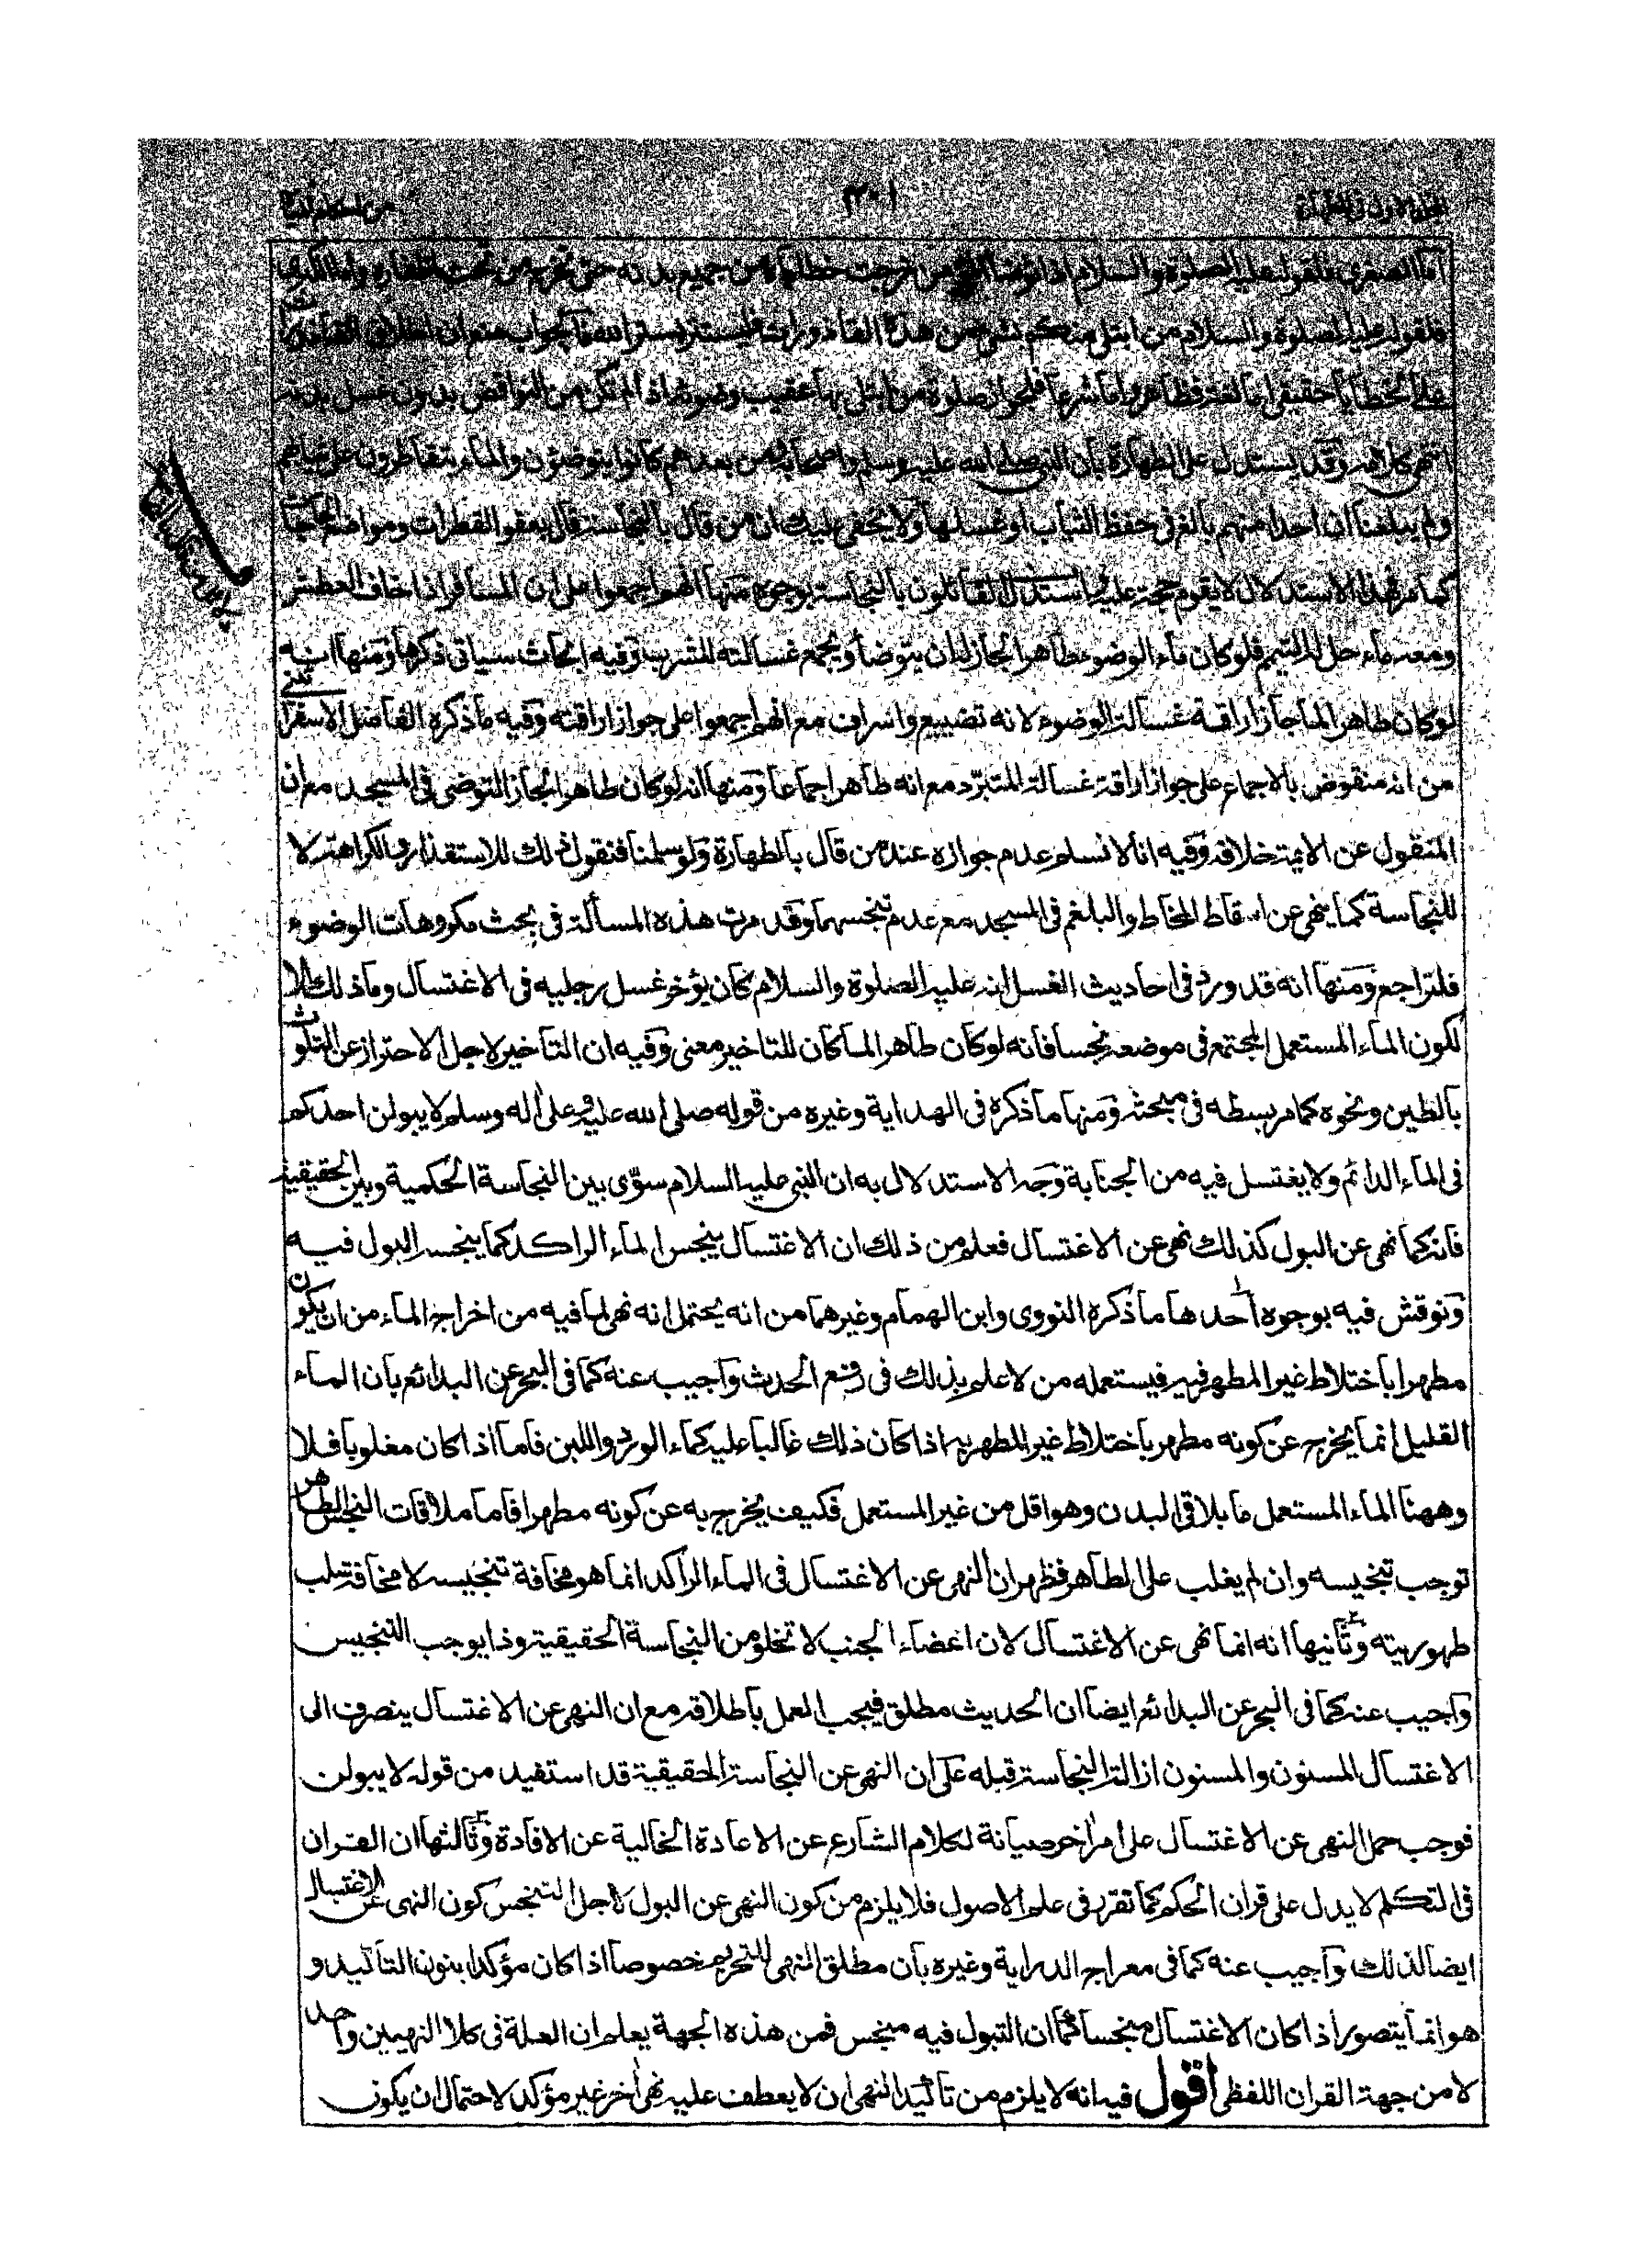 اما الصغرى فلقوله عليه الصلوة والسلام اذا توضأ المؤمن خرجت خطاياه من جميع بدنه حتى تخرج من تحت اظفاره واما الكبرى
فلقوله عليه الصلوة والسلام من ابتلى منكم بشئ من هذه القاذورات فليستتر بستر الله فالجواب منع ان اطلاق القاذورات
على الخطايا حقيقى اما لغة فظاهر واما شرعا فلجواز صلوة من ابتلى بها عقيب وضوئه اذا لم تكن من النواقض بدون غسل بدنه
انتهى كلامه وقد يستدل على الطهارة بان النبى صلى الله عليه وسلم واصحابه ومن بعدهم كانوا يتوضئون والماء يتقاطر على ثيابهم
ولم يبلغنا ان احدا منهم بالغ فى حفظ الثياب او غسلها ولا يخفى عليك ان من قال بالنجاسة قال بعفو القطرات ومواضع الحاجة
كما مر فهذا الاستدلال لا يقوم حجة عليه واستدل القائلون بالنجاسة بوجوه منها انهم اجمعوا على ان المسافر اذا خاف العطش
ومعه ماء حل له التيمم فلو كان ماء الوضوء طاهرا لجاز له ان يتوضأ ويجمع غسالته للشرب وفيه ابحاث سيأتى ذكرها ومنها انه
لو كان طاهرا لما جاز اراقة غسالة الوضوء لانه تضييع واسراف مع انهم اجمعوا على جواز اراقته وفيه ما ذكره الفاضل الاسفرائنى
من انه منقوض بالاجماع على جواز اراقة غسالة المتبرد مع انه طاهر اجماعا ومنها انه لو كان طاهرا لجاز التوضى فى المسجد مع ان
المنقول عن الائمة خلافه وفيه انا لا نسلم عدم جوازه عند من قال بالطهارة ولو سلمنا فنقول ذلك للاستقذار والكراهة لا
للنجاسة كما ينهى عن اسقاط المخاط والبلغم فى المسجد مع عدم تنجسهما وقد مرت هذه المسألة فى بحث مكروهات الوضوء
فلتراجع ومنها انه قد ورد فى احاديث الغسل انه عليه الصلوة والسلام كان يؤخر غسل رجليه فى الاغتسال وما ذلك الا
لكون الماء المستعمل المجتمع فى موضعه نجسا فانه لو كان طاهرا لما كان للتاخير معنى وفيه ان التأخير لاجل الاحتراز عن التلوث
بالطين ونحوه كما مر بسطه فى مبحثه ومنها ما ذكره فى الهداية وغيره من قوله صلى الله عليه وعلى اله وسلم لا يبولن احدكم
فى الماء الدائم ولا يغتسل فيه من الجنابة وجه الاستدلال به ان النبى عليه السلام سوى بين النجاسة الحكمية وبين الحقيقية
فانه كما نهى عن البول كذلك نهى عن الاغتسال فعلم من ذلك ان الاغتسال ينجس الماء الراكد كما ينجسه البول فيه
ونوقش فيه بوجوه احدها ما ذكره النووى وابن الهمام وغيرهما من انه يحتمل انه نهى لما فيه من اخراج الماء من ان يكون
مطهرا باختلاط غير المطهر فيه فيستعمله من لا علم بذلك فى رفع الحدث واجيب عنه كما فى البحر عن البدائع بان الماء
القليل انما يخرج عن كونه مطهر باختلاط غير المطهر به اذا كان ذلك غالبا عليه كماء الورد واللبن فاما اذا كان مغلوبا فلا
وههنا الماء المستعمل ما يلاقى البدن وهو اقل من غير المستعمل فكيف يخرج به عن كونه مطهرا فاما ملاقات النجس الطاهر
توجب تنجيسه وان لم يغلب على الطاهر فظهر ان النهى عن الاغتسال فى الماء الراكد انما هو مخافة تنجيسه لا مخافة سلب
طهوريته وثانيها انه انما نهى عن الاغتسال لان اعضاء الجنب لا تخلو من النجاسة الحقيقية وذا يوجب التنجيس
واجيب عنه كما فى البحر عن البدائع ايضا ان الحديث مطلق فيجب العمل باطلاقه مع ان النهى عن الاغتسال ينصرف الى
الاغتسال المسنون والمسنون ازالة النجاسة قبله على ان النهى عن النجاسة الحقيقية قد استفيد من قوله لا يبولن
فوجب حمل النهى عن الاغتسال على امر اخر صيانة لكلام الشارع عن الاعادة الخالية عن الافادة وثالثها ان القران
فى التكلم لا يدل على قران الحكم كما تقرر فى علم الاصول فلا يلزم من كون النهى عن البول لاجل التنجس كون النهى عن الاغتسال
ايضا لذلك واجيب عنه كما فى معراج الدراية وغيره بان مطلق النهى للتحريم خصوصا اذا كان مؤكدا بنون التأكيد و
هو انما يتصور اذا كان الاغتسال منجسا كما ان التبول فيه منجس فمن هذه الجهة يعلم ان العلة فى كلا النهيين واحد
لا من جهة القران اللفظى اقول فيه انه لا يلزم من تأكيد النهى ان لا يعطف عليه نهى اخر غير مؤكد لاحتمال ان يكون